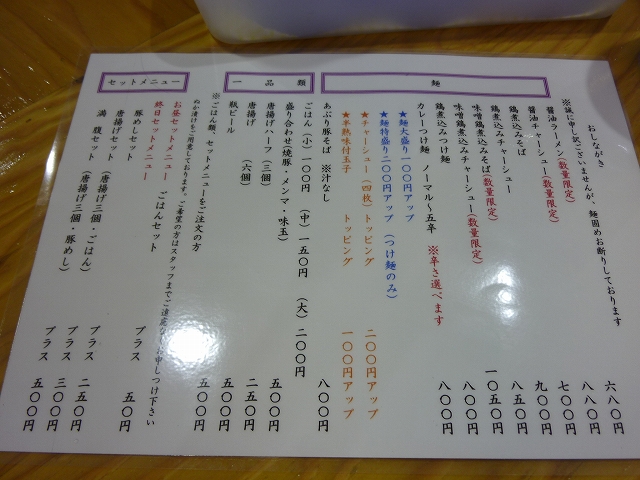 麺
おしながき
※誠に申し訳ございませんが、麺固めお断りしております
醤油ラーメン(数量限定) 六八〇円
醤油チャーシュー(数量限定) 八八〇円
鶏煮込みそば 七〇〇円
鶏煮込みチャーシュー 九〇〇円
味噌鶏煮込みそば(数量限定) 八五〇円
味噌鶏煮込みチャーシュー(数量限定) 一〇五〇円
鶏煮込みつけ麺 八〇〇円
カレーつけ麺 ノーマル～五辛 ※辛さ選べます 八〇〇円
★麺大盛り一〇〇円アップ
★麺特盛り二〇〇円アップ (つけ麺のみ)
★チャーシュー(四枚) トッピング 二〇〇円アップ
★半熟味付玉子 トッピング 一〇〇円アップ
あぶり豚そば ※汁なし 八〇〇円
一品類
ごはん (小)一〇〇円 (中)一五〇円 (大)二〇〇円
盛り合わせ(焼豚・メンマ・味玉) 五〇〇円
唐揚げハーフ(三個) 二五〇円
唐揚げ (六個) 五〇〇円
瓶ビール 五〇〇円
※ごはん類、セットメニューをご注文の方
ぬか漬けをご用意しております。ご希望の方はスタッフまでご遠慮なくお申しつけ下さい
セットメニュー
お昼セットメニュー
終日セットメニュー ごはんセット プラス 五〇円
豚めしセット プラス 二五〇円
唐揚げセット (唐揚げ三個・ごはん) プラス 三〇〇円
満腹セット (唐揚げ三個・豚めし) プラス 五〇〇円